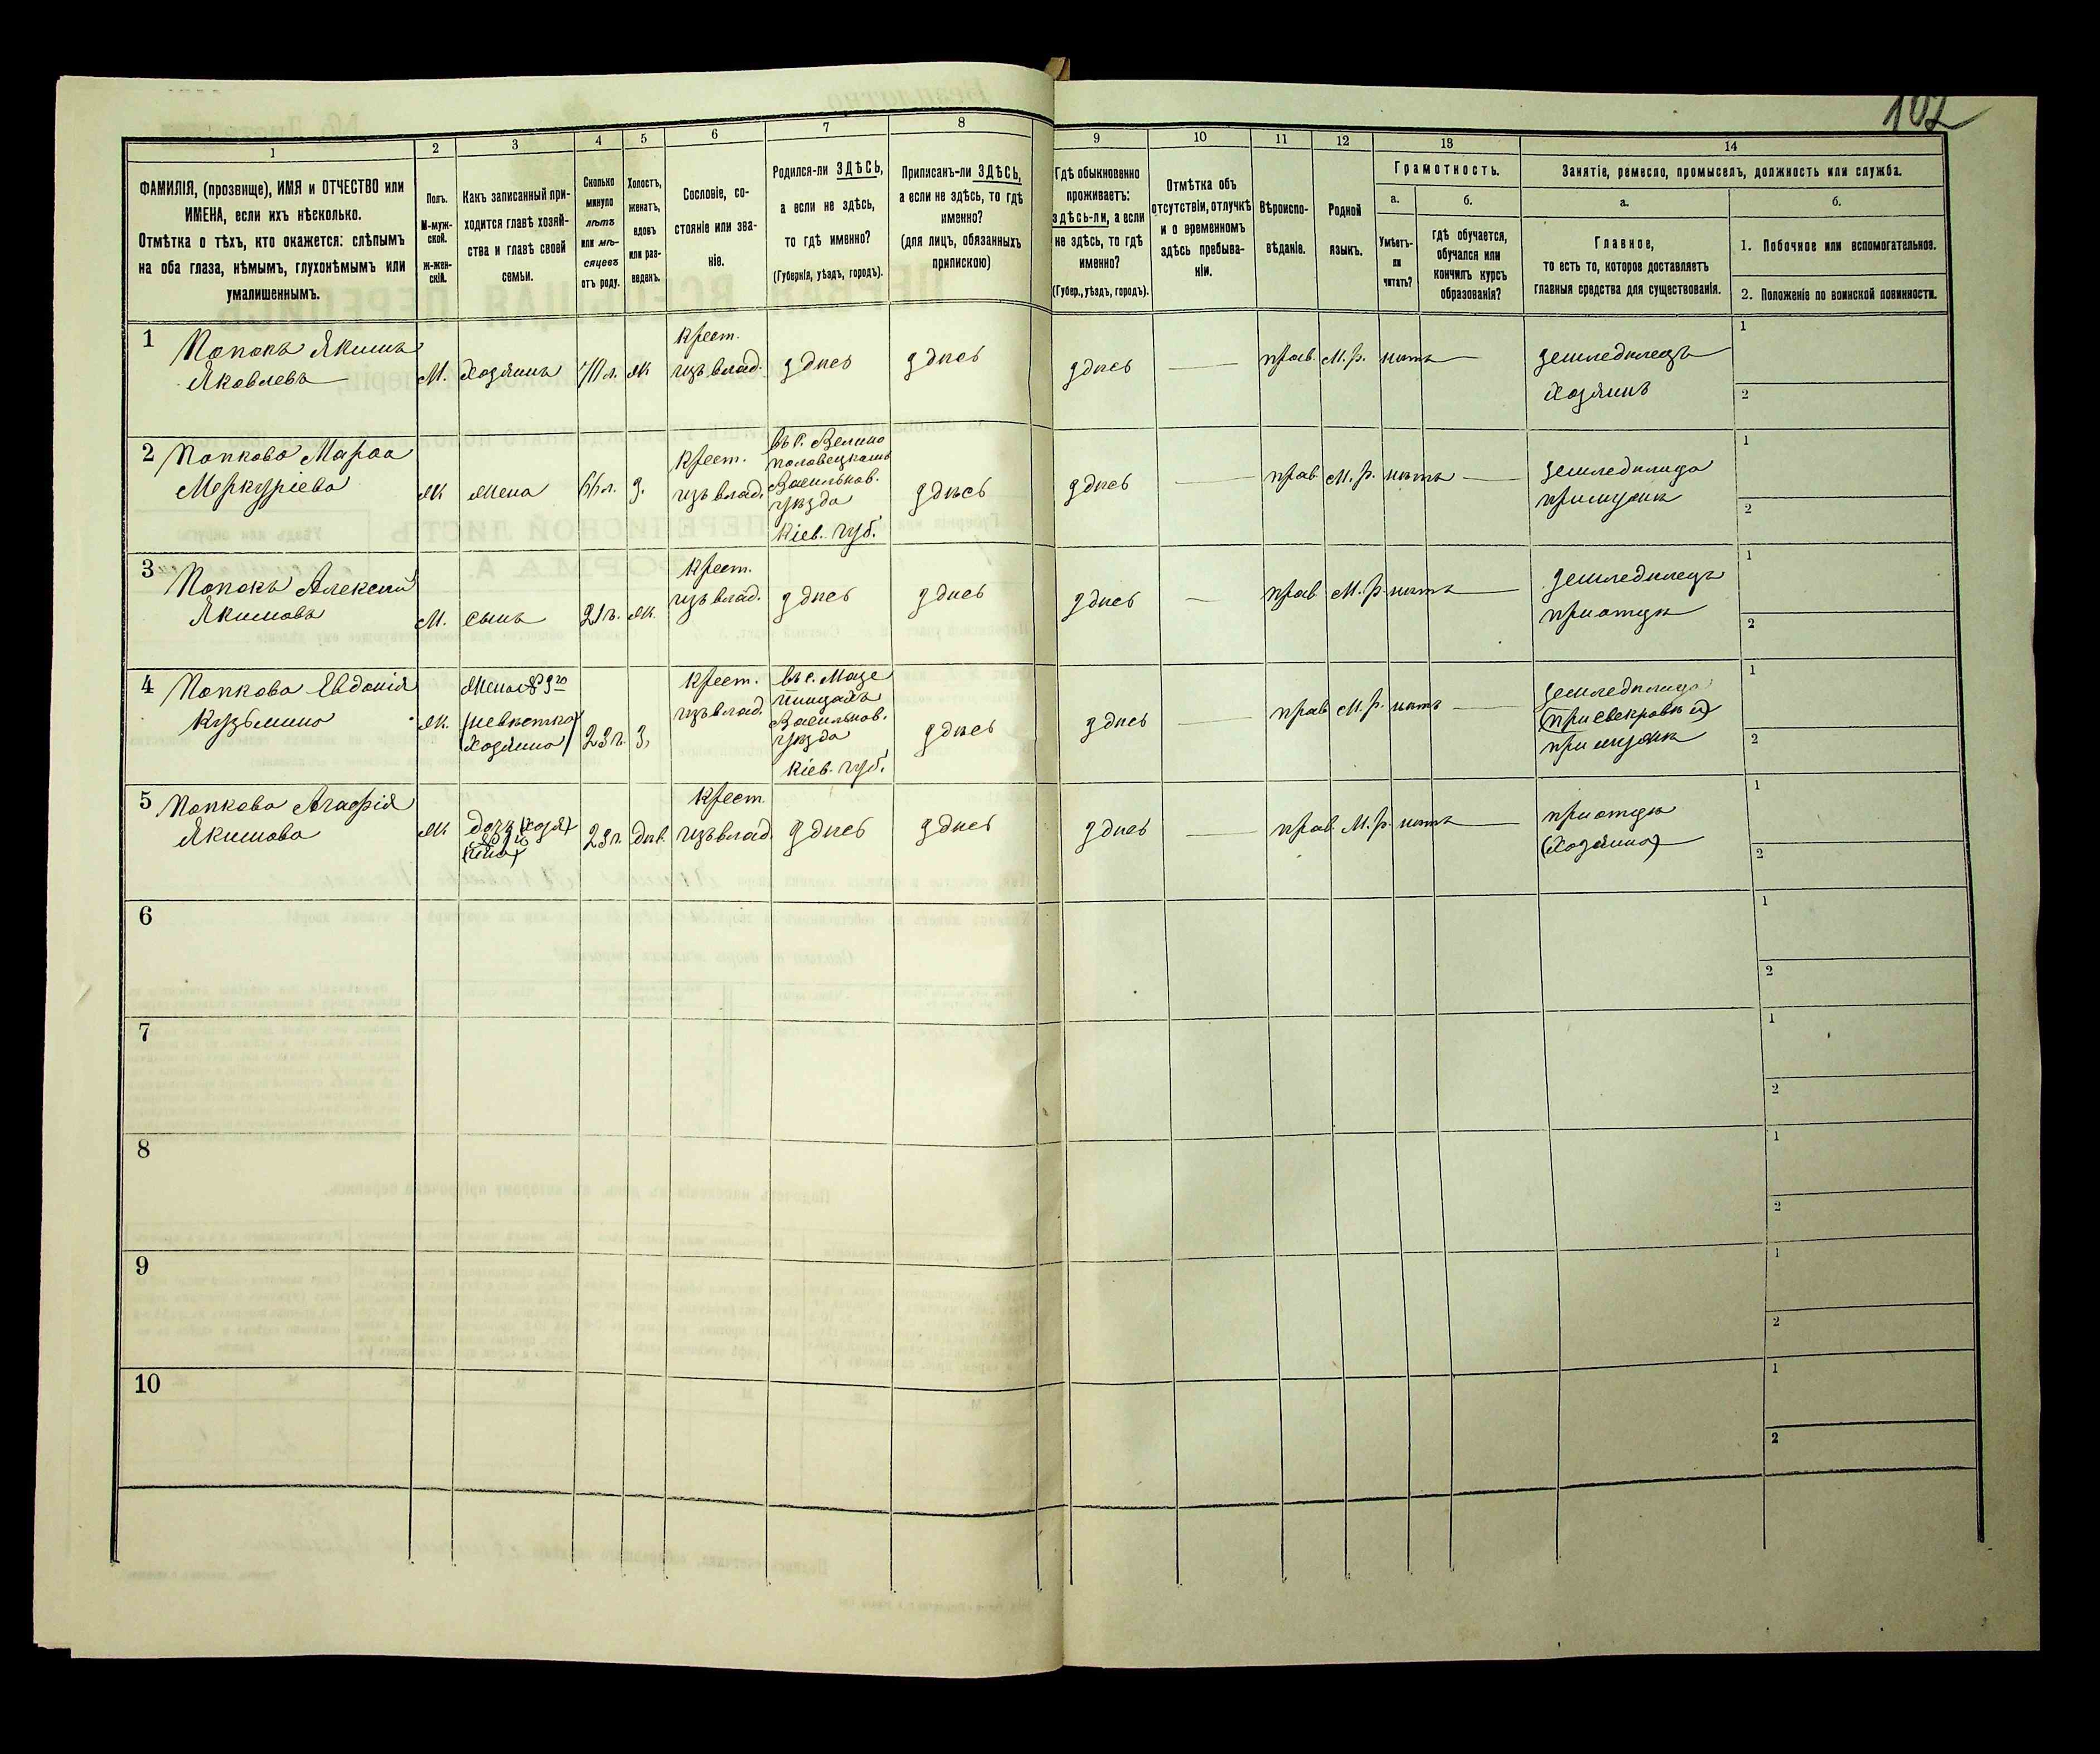 102
1
2
3
4
5
6
7
8
9
10
11
12
13
14
ФАМИЛІЯ, (прозвище), ИМЯ и ОТЧЕСТВО или
ИМЕНА, если ихъ нѣсколько.
Отмѣтка о тѣхъ, кто окажется: слѣпымъ
на оба глаза, нѣмымъ, глухонѣмымъ или
умалишеннымъ.
Полъ.
М-муж-
ской.
ж-жен-
скій.
Какъ записанный при-
ходится главѣ хозяй-
ства и главѣ своей
семьи.
Сколько
минуло
лѣтъ
или мѣ-
сяцевъ
отъ роду.
Холостъ,
женатъ,
вдовъ
или раз-
веденъ.
Сословіе, со-
стояніе или зва-
ніе.
Родился-ли ЗДѢСЬ,
а если не здѣсь,
то гдѣ именно?
(Губернія, уѣздъ, городъ).
Приписанъ-ли ЗДѢСЬ,
а если не здѣсь, то гдѣ
именно?
(для лицъ, обязанныхъ
припискою)
Гдѣ обыкновенно
проживаетъ:
здѣсь-ли, а если
не здѣсь, то гдѣ
именно?
(Губер., уѣздъ, городъ).
Отмѣтка объ
отсутствіи, отлучкѣ
и о временномъ
здѣсь пребыва-
ніи.
Вѣроиспо-
вѣданіе.
Родной
языкъ.
Грамотность.
а.
Умѣетъ-
ли
читать?
б.
гдѣ обучается,
обучался или
кончилъ курсъ
образованія?
Занятіе, ремесло, промыселъ, должность или служба.
а.
Главное,
то есть то, которое доставляетъ
главныя средства для существованія.
б.
1. Побочное или вспомогательное.
2. Положеніе по воинской повинности.
1
Попокъ Якимъ
Яковлевъ
М.
Хозяинъ
70 л.
ж
Крест.
изъ влад.
здѣсь
здѣсь
здѣсь
прав.
М. р.
нѣтъ
земледѣлецъ
хозяинъ
1
2
2
Попкова Марѳа
Меркуріева
ж
жена
66 л.
з.
Крест.
изъ влад.
въ с. Велико
половецкомъ
Васильков.
уѣзда
Кіев. губ.
здѣсь
здѣсь
прав
М. р.
нѣтъ
земледѣлица
при мужѣ
1
2
3
Попокъ Алексѣй
Якимовъ
М.
сынъ
21 г.
ж.
Крест.
изъ влад.
здѣсь
здѣсь
здѣсь
прав
М. р.
нѣтъ
земледѣлецъ
при отцѣ
1
2
4
Попкова Евдокія
Кузьмина
ж.
жена № 3го
(невѣстка
хозяина)
23 г.
з,
Крест.
изъ влад.
Васильков.
уѣзда
Кіев. губ.
здѣсь
здѣсь
прав
М. р.
нѣтъ
земледѣлица
при мужѣ
1
2
5
Попкова Агафія
Якимова
ж
23 г.
дѣв.
Крест.
изъ влад
здѣсь
здѣсь
здѣсь
прав.
М. р.
нѣтъ
при отцѣ
(хозяина)
1
2
6
1
2
7
1
2
8
1
2
9
1
2
10
1
2